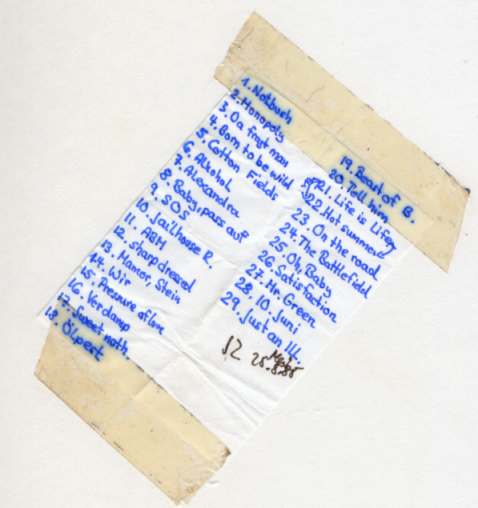 1. Notbush
2. Monopoly
3. Da fragt man
4. Born to be wild
5. Cotton Fields
6. Alkohol
7. Alexandra
8. Baby, pass auf
9. SOS
10. Jailhouse R.
11. ABM
12. sharp dressed
13. Marmor, Stein
14. Wir
15. Pressure of love
16. Verdamp
17. Sweet
18. Ölpest
19. Beast of B.
20. Tell him
21. Life is Life
22. Hot summer
23. On the road
24. The Battlefield
25. Oh, Baby
26. Satisfaction
27. Mr. Green
28. 10. Juni
29. Just an Ill.